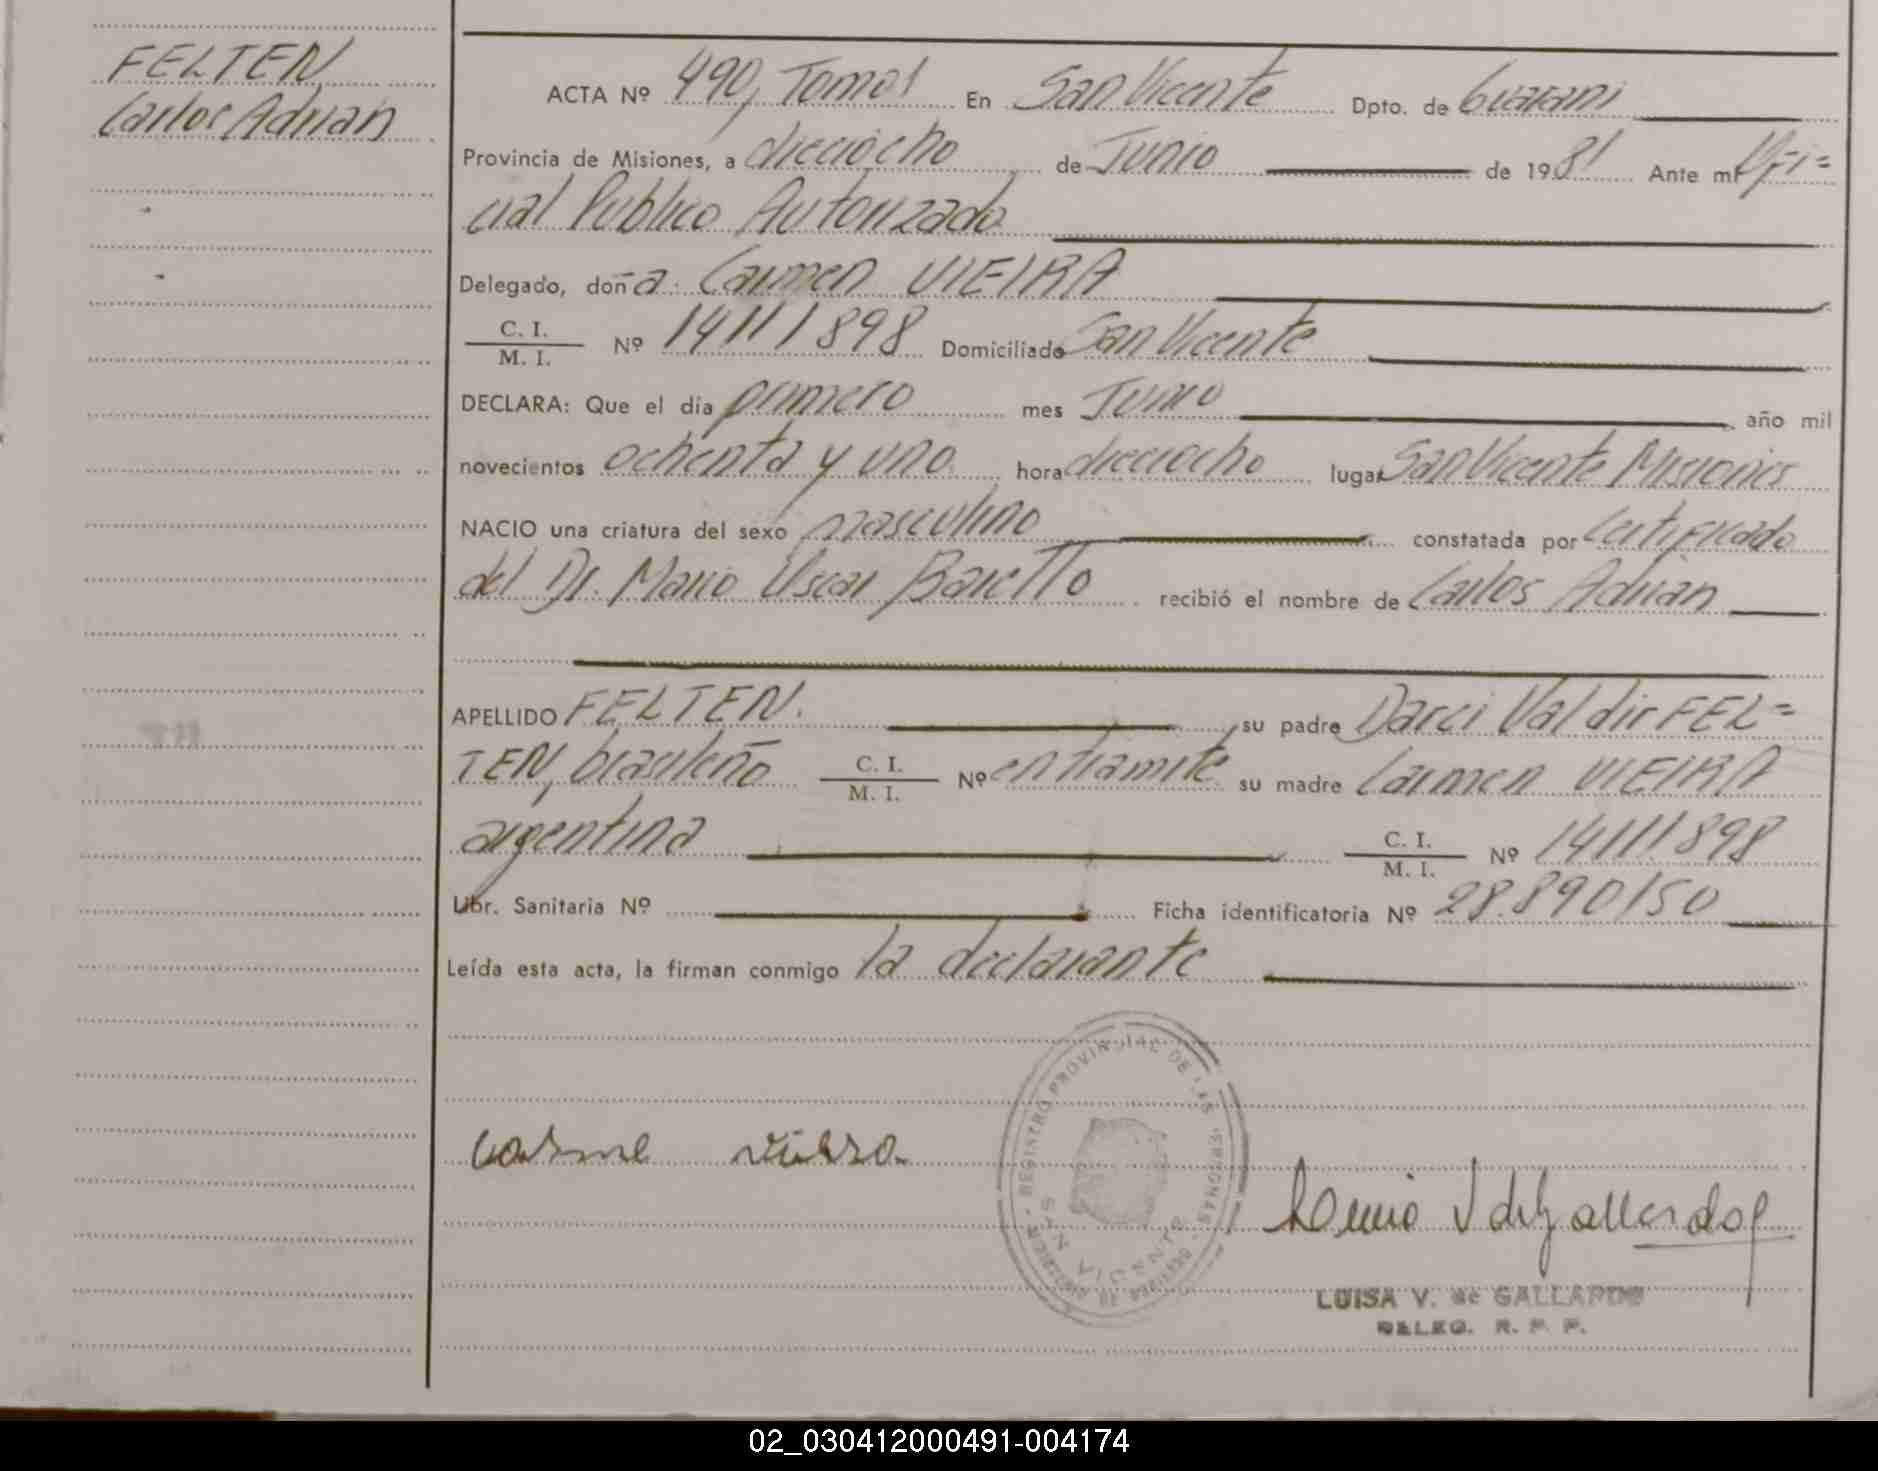 FELTEN
Carlos Adrian
ACTA Nº 490, Tomo I En San Vicente Dpto. de Guarani
Provincia de Misiones, a dieciocho de Junio de 1981 Ante mí Ofi=
cial Publico Autorizado
Delegado, doña Carmen VIEIRA
C. I. / M. I. Nº 14111898 Domiciliado San Vicente
DECLARA: Que el día primero mes Junio año mil
novecientos ochenta y uno hora dieciocho lugar San Vicente Misiones
NACIO una criatura del sexo masculino constatada por certificado
del Dr. Mario Oscar Baretto recibió el nombre de Carlos Adrian
APELLIDO FELTEN. su padre Darci Valdir FEL=
TEN, brasileño C. I. / M. I. Nº en tramite su madre Carmen VIEIRA
argentina C. I. / M. I. Nº 14111898
Libr. Sanitaria Nº Ficha identificatoria Nº 28.890/50
Leída esta acta, la firman conmigo la declarante
REGISTRO PROVINCIAL DE LAS PERSONAS
SAN VICENTE
LUISA V. de GALLARDO
DELEG. R. P. P.
02_030412000491-004174